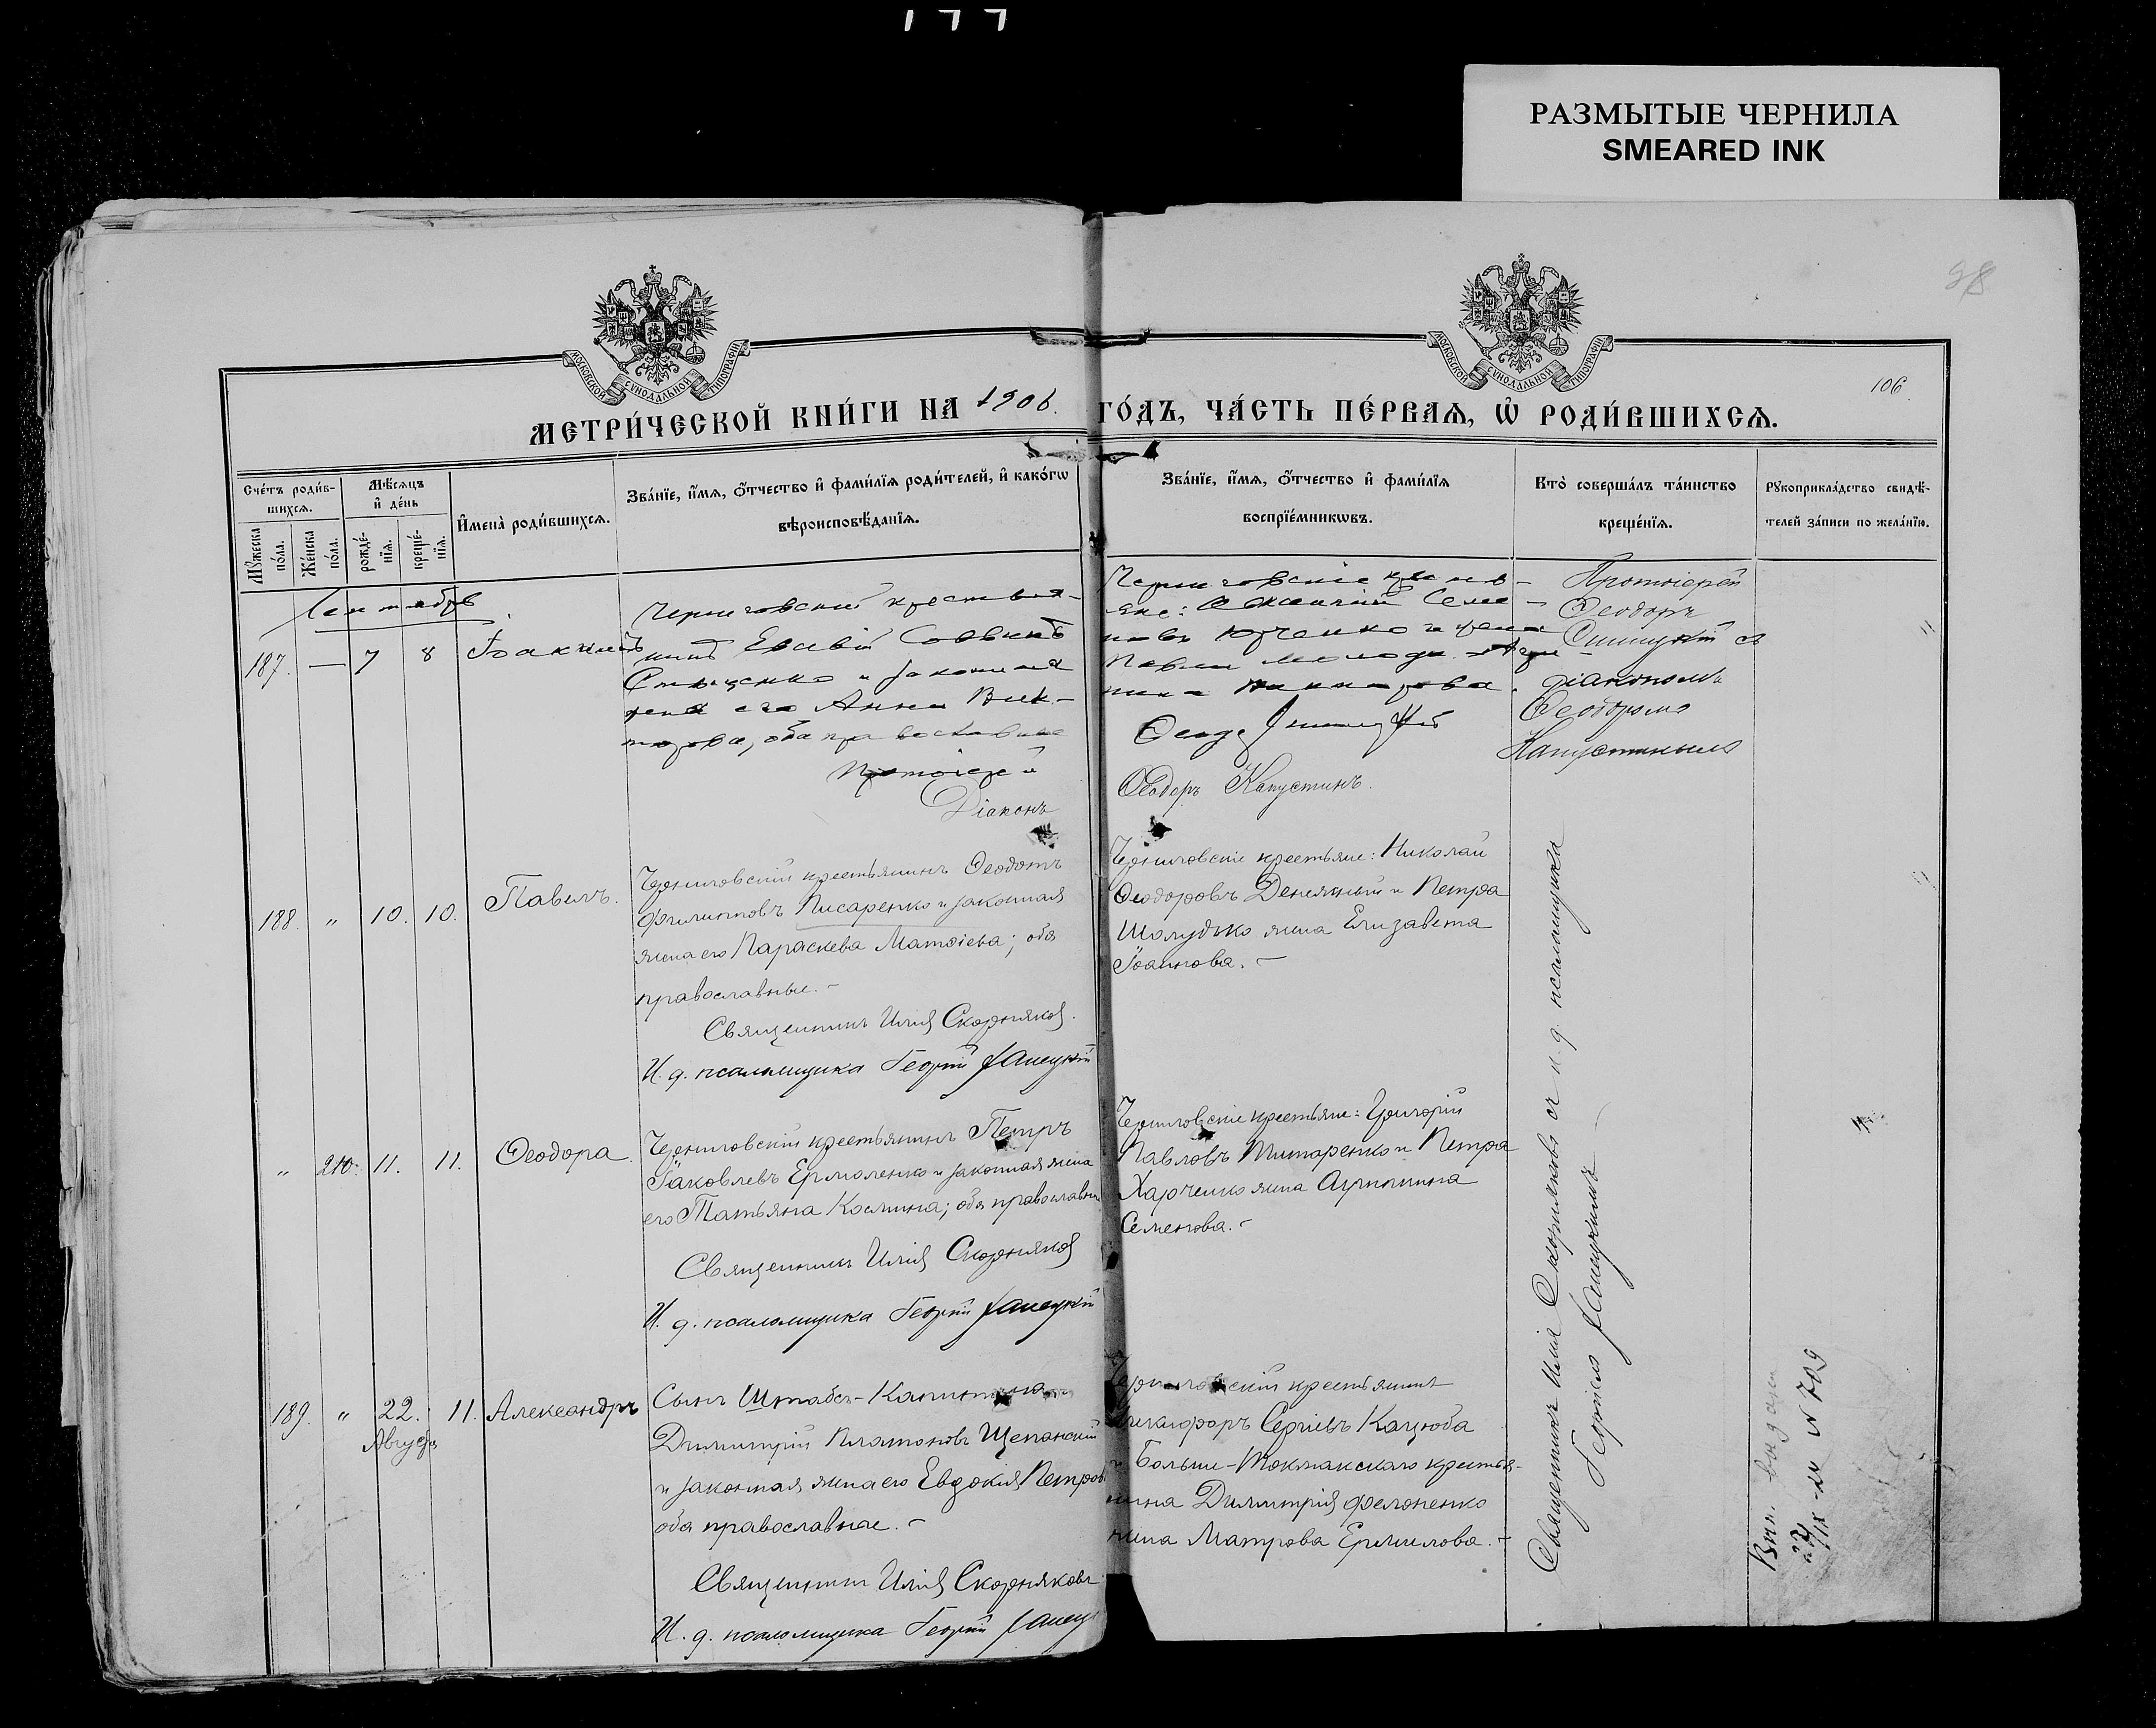 177
РАЗМЫТЫЕ ЧЕРНИЛА
SMEARED INK
98
МОСКОВСКОЙ СѴНОДАЛЬНОЙ ТИПОГРАФІИ
МОСКОВСКОЙ СѴНОДАЛЬНОЙ ТИПОГРАФІИ
106.
МЕТРИ́ЧЕСКОЙ КНИ́ГИ НА 1906. ГО́ДЪ, ЧА́СТЬ ПЕ́РВАѦ, Ѿ РОДИ́ВШИХСѦ.
Сче́тъ роди́в-
шихсѧ.
Мꙋ́жеска по́ла.
Же́нска по́ла.
Мѣ́сѧцъ
и҆ де́нь
рожде́-
нїѧ.
креще́-
нїѧ.
И҆мена̀ роди́вшихсѧ.
Зва́нїе, и҆́мѧ, ѻ҆́тчество и҆ фами́лїѧ роди́телей, и҆ како́гѡ
вѣроисповѣ́данїѧ.
Зва́нїе, и҆́мѧ, ѻ҆́тчество и҆ фами́лїѧ
воспрїе́мникѡвъ.
Кто̀ соверша́лъ та́инство
креще́нїѧ.
Рꙋкоприкла́дство свидѣ́-
телей за́писи по жела́нїю.
Сентябрь
187. — 7 8 Іоакимъ
Черниговскій крестья-
нинъ Евсевій Саввинъ
и законная
жена его Анна Вик-
торова, оба православные
Протоіерей
Діаконъ
Черниговскіе кресть-
яне: Семе-
новъ Юрченко и жена
Павла
Ѳеодоръ Капустинъ.
Протоіерей
Ѳеодоръ
съ
діакономъ
Ѳеодоромъ
Капустинымъ
188. " 10. 10. Павелъ.
Черниговскій крестьянинъ Ѳеодотъ
Филипповъ Писаренко и законная
жена его Параскева Матѳіева; оба
православные. –
Священникъ Илія Скорняковъ.
И. д. псаломщика Георгій
Черниговскіе крестьяне: Николай
Ѳеодоровъ Денежный и Петра
Шолудько жена Елизавета
Іоаннова. –
" 210. 11. 11. Ѳеодора.
Черниговскій крестьянинъ Петръ
Іаковлевъ Ермоленко и законная жена
его Татьяна Космина; оба православные
Священникъ Илія Скорняковъ
И. д. псаломщика Георгій
Черниговскіе крестьяне: Григорій
Павловъ Титаренко и Петра
Харченко жена Агрипина
Семенова. –
189. " 22. 11. Александръ
Августа
Сынъ Штабсъ-Капитана
Димитрій Платоновъ Щепанскій
и законная жена его Евдокія Петрова
оба православные. –
Священникъ Илія Скорняковъ
И. д. псаломщика Георгій
Черниговскій крестьянинъ
Никифоръ Сергіевъ Кацюба
и Больше-Токмакскаго крестья-
нина Димитрія Филоненко
жена Матрона Ермилова. –
Священникъ Илія Скорняковъ съ и. д. псаломщика
Георгіемъ
выдана
№ 709